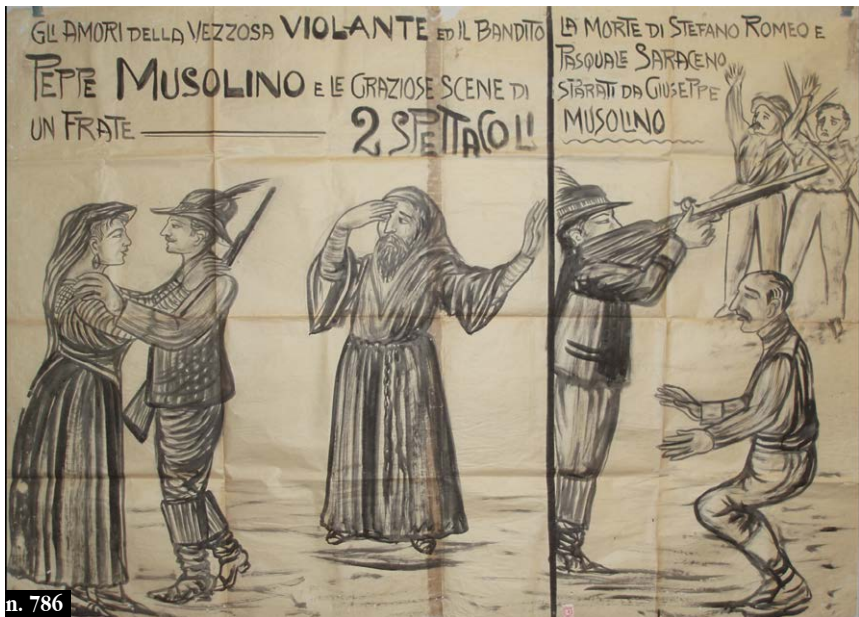 GLI AMORI DELLA VEZZOSA VIOLANTE ED IL BANDITO
PEPPE MUSOLINO E LE GRAZIOSE SCENE DI
UN FRATE
2 SPETTACOLI
LA MORTE DI STEFANO ROMEO E
PASQUALE SARACENO
SPARATI DA GIUSEPPE
MUSOLINO
n. 786